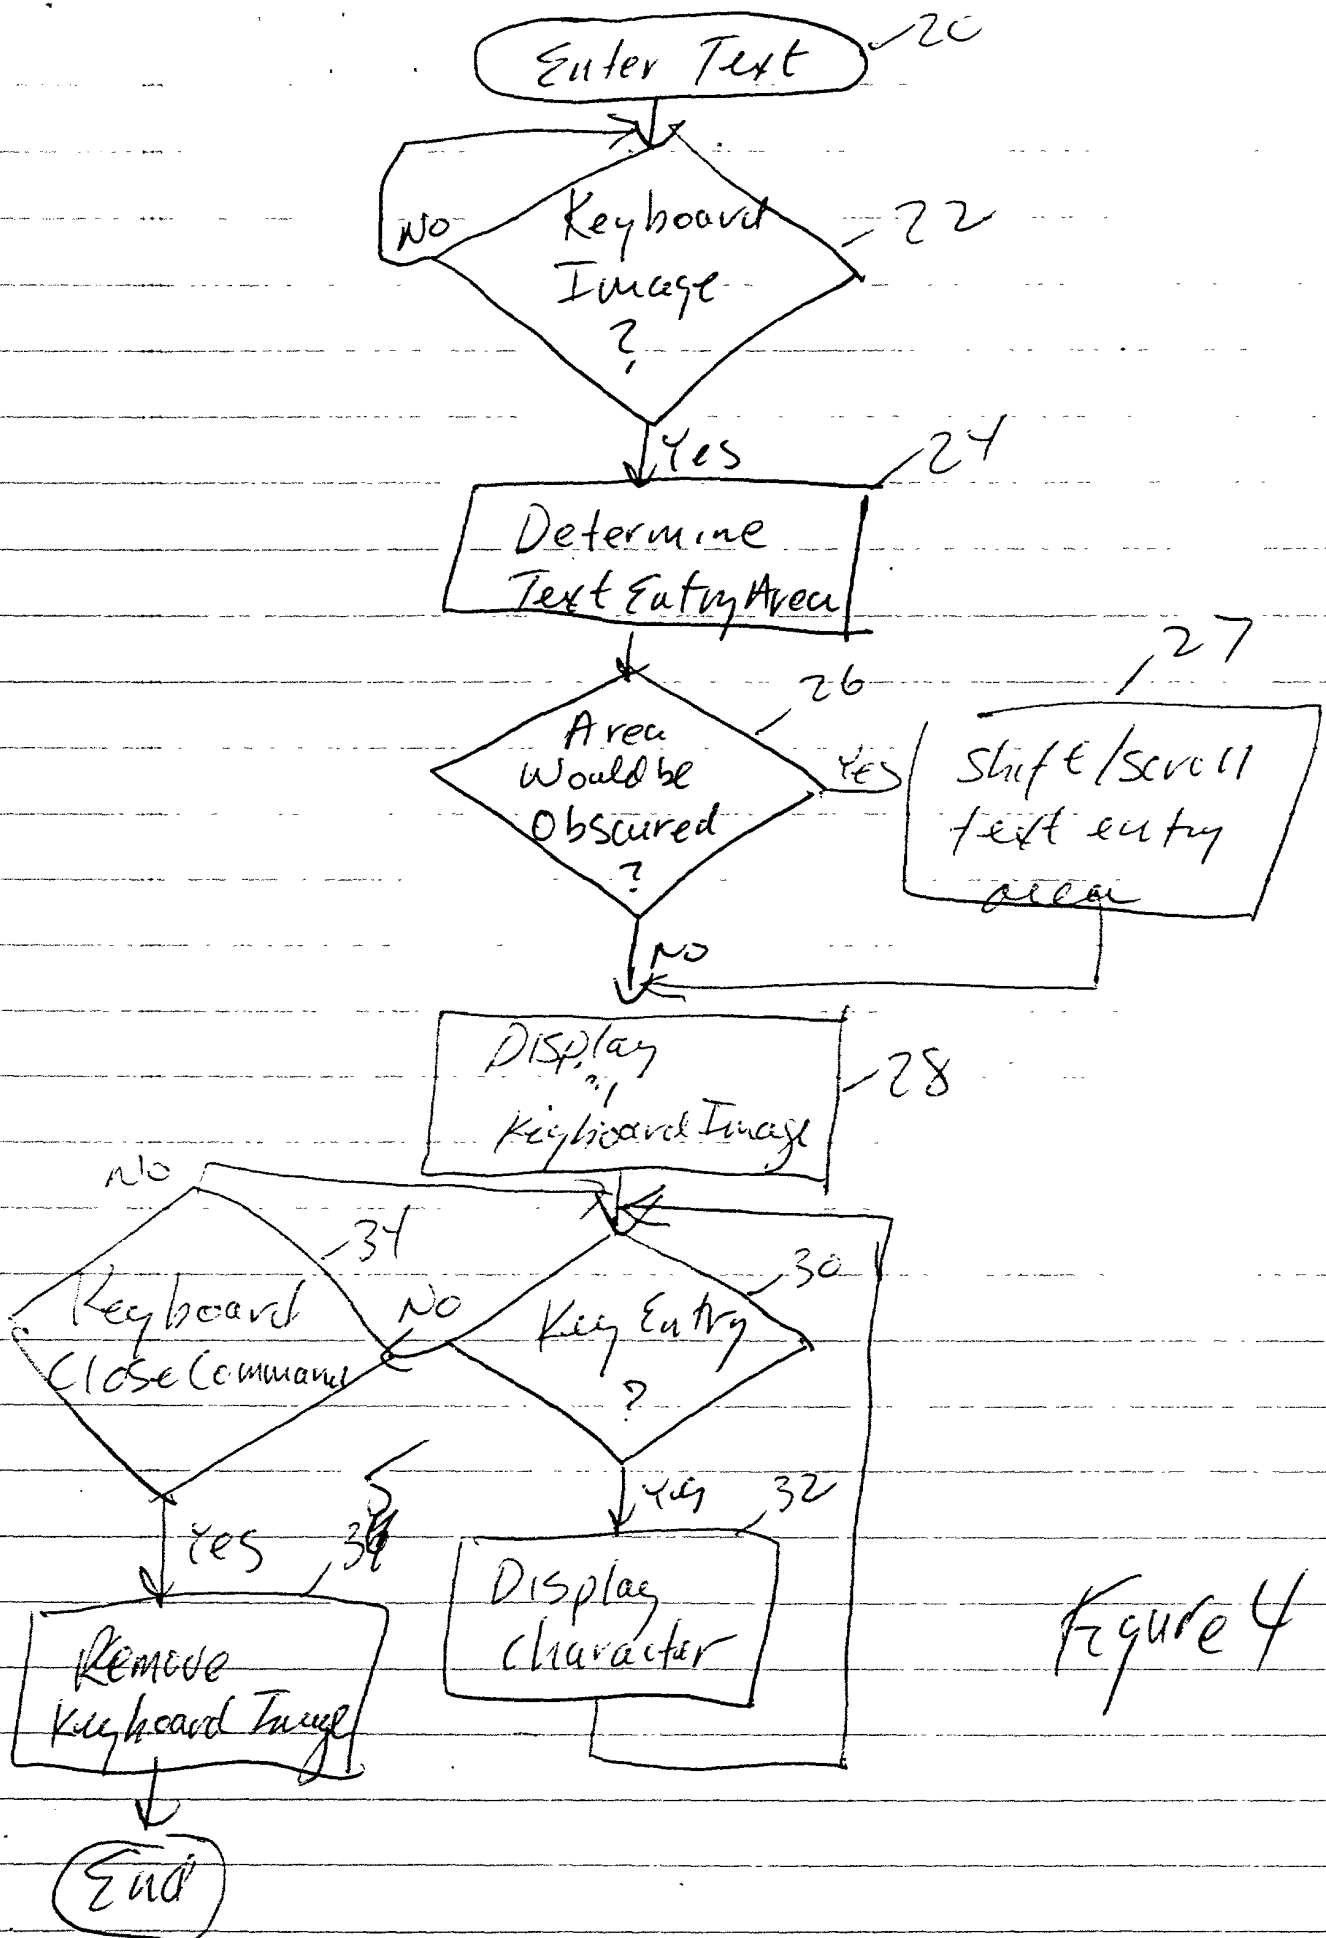 Enter Text
20
Keyboard
Image
?
No
22
Yes
24
Determine
Text Entry Area
26
Area
Would be
Obscured
?
Yes
27
Shift/Scroll
text entry
area
No
Display
Keyboard Image
28
No
34
Keyboard
Close Command
No
30
Key Entry
?
Yes
32
Display
Character
Yes
Remove
Keyboard Image
End
Figure 4